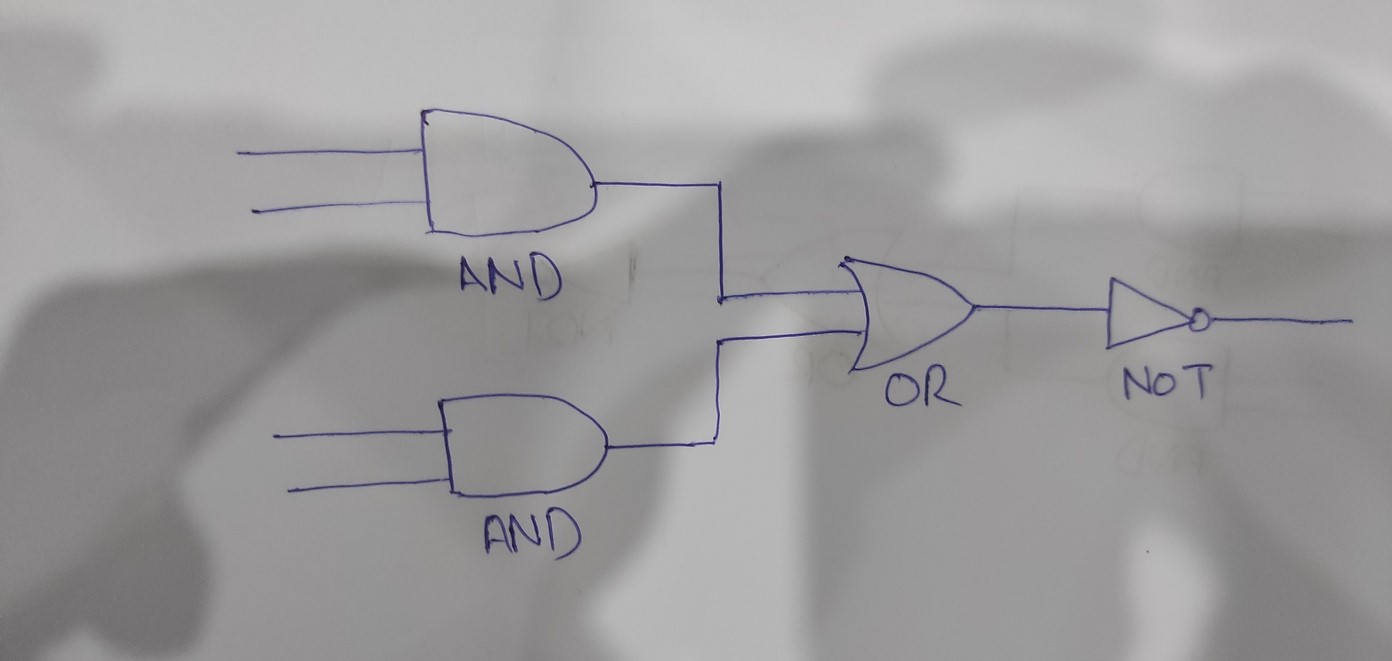 AND
OR
NOT
AND